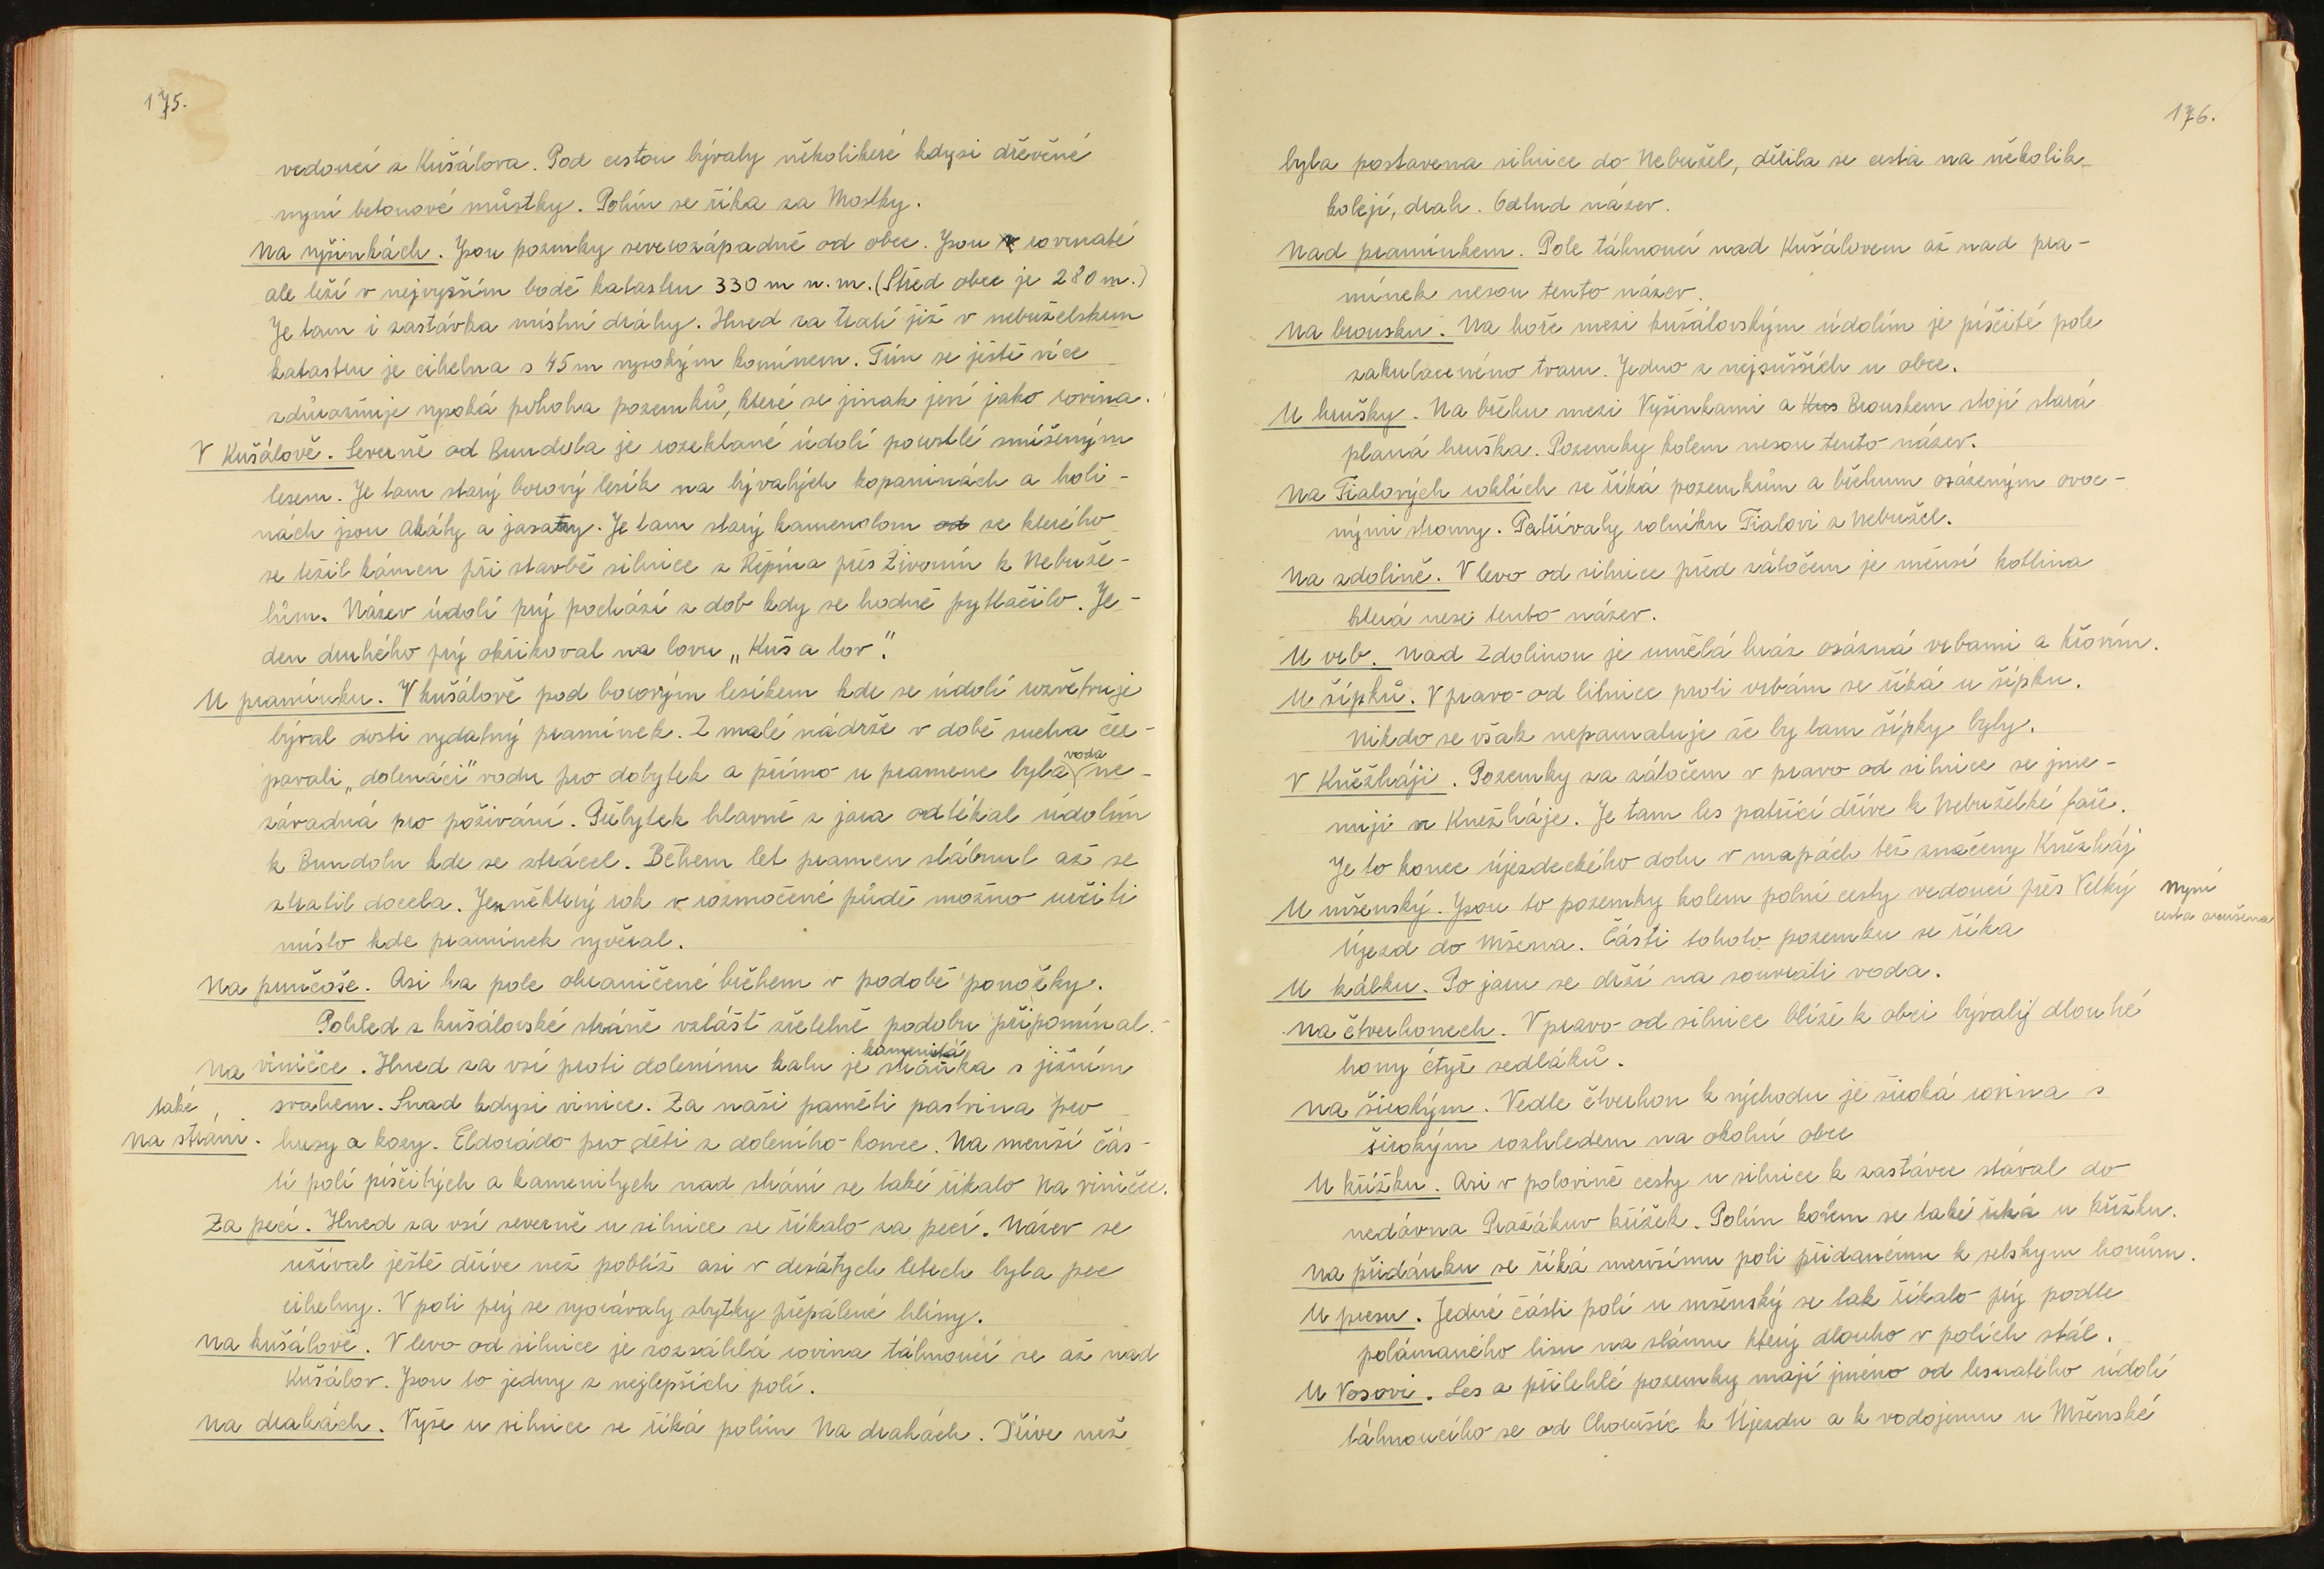 175.
vedoucí z Kušálova. Pod cestou bývaly několikeré kdysi dřevěné
nyní betonové můstky. Polím se říka za Mostky.
Na vyšinkách. Jsou pozemky severozápadně od obce. Jsou rovinaté
ale leží v nejvyšším bodě katastru 330 m n. m. (Střed obce je 280 m.)
Je tam i zastávka místní dráhy. Hned za tratí již v nebuželskem
katastru je cihelna s 45 m vysokým komínem. Tím se ještě více
zdůrazňuje vysoká poloha pozemků, které se jinak jeví jako rovina.
V Kušálově. Severně od Bundolu je rozeklané údolí porostlé smíšeným
lesem. Je tam starý borový lesík na bývalých kopaninách a holi-
nách jsou akáty a jasany. Je tam starý kamenolom od ze kterého
se težil kámen při stavbě silnice z Řepína přes Živonín k Nebuže-
lům. Název údolí prý pochází z dob kdy se hodně pytlačilo. Je-
den druhého prý okřikoval na lovu „Kuš a lov".
U pramínku. V kušálově pod borovým lesíkem kde se údolí rozvětvuje
býval dosti vydatný pramínek. Z malé nádrže v době sucha čer-
pavali „dolenáci" vodu pro dobytek a přímo u pramene byla voda ne-
závadná pro požívání. Přebytek hlavně z jara odtékal údolím
k Bundolu kde se ztrácel. Během let pramen slábnul až se
ztratil docela. Jen některý rok v rozmočené půdě možno určiti
místo kde pramínek vyvěral.
Na punčoše. Asi ha pole ohraničené břehem v podobě ponožky.
Pohled z kušálovské stráně vzlášť zřetelně podobu připomínal.
Na viničce. Hned za vsí proti dolenímu kalu je kamenitá stráňka s jižním
svahem. Snad kdysi vinice. Za naši paměti pastvina pro
také
Na stráni. husy a kozy. Eldorádo pro děti z doleního konce. Na menší čás-
tí polí písčitých a kamenitych nad strání se také říkalo Na viničce.
Za pecí. Hned za vsí severně u silnice se říkalo za pecí. Název se
užíval ještě dříve než poblíž asi v desátych letech byla pec
cihelny. V poli prý se vyorávaly zbytky přepálené hlíny.
Na kušálově. V levo od silnice je rozsáhlá rovina táhnoucí se až nad
Kušálov. Jsou to jedny z nejlepších polí.
Na drahách. Vyše u silnice se říká polím Na drahách. Dříve než
176.
byla postavena silnice do Nebužel, dělila se cesta na několik
kolejí, drah. Odtud název.
Nad pramínkem. Pole táhnoucí nad Kušálovem až nad pra-
mínek nesou tento název.
Na brousku. Na hoře mezi kušálovským údolím je písčité pole
zakulaceného tvaru. Jedno z nejsušších u obce.
U hrušky. Na břehu mezi Vyšinkami a Kus Brouskem stojí stará
planá hruška. Pozemky kolem nesou tento název.
Na Fialových roklích se říká pozemkům a břehum osázeným ovoc-
nými stromy. Patřívaly rolníku Fialovi z Nebužel.
Na zdolině. V levo od silnice před zátočem je menší kotlina
která nese tento název.
U vrb. Nad Zdolinou je umělá hráz osázná vrbami a křovím.
U šípků. V pravo od silnice proti vrbám se říká u šípku.
Nikdo se však nepamatuje že by tam šípky byly.
V Kněžháji. Pozemky za zátočem v pravo od silnice se jme-
nují v Kněžháje. Je tam les patřící dříve k Nebuželké faře.
Je to konec újezdeckého dolu v mapách též značeny Kněžháj
U mšenský. Jsou to pozemky kolem polní cesty vedoucí přes Velký
Újezd do Mšena. Části tohoto pozemku se říka
Nyní
cesta zrušena
U kálku. Po jaru se drží na souvrati voda.
Na čtvrhonech. V pravo od silnice blíže k obci bývalý dlouhé
hony čtyř sedláků.
Na širokým. Vedle čtvrhon k východu je široká rovina s
širokým rozhledem na okolní obce
U křížku. Asi v polovině cesty u silnice k zastávce stával do
nedávna Pražákuv křížek. Polím kolem se také říká u křížku.
Na přídánku se říká menšímu poli přidanému k selskym honům.
U presu. Jedné části polí u mšenský se tak říkalo prý podle
polámaného lisu na slámu který dlouho v polích stál.
U Vosovi. Les a přilehlé pozemky mají jméno od lesnatého údolí
táhnoucího se od Chorušic k Újezdu a k vodojemu u Mšenské